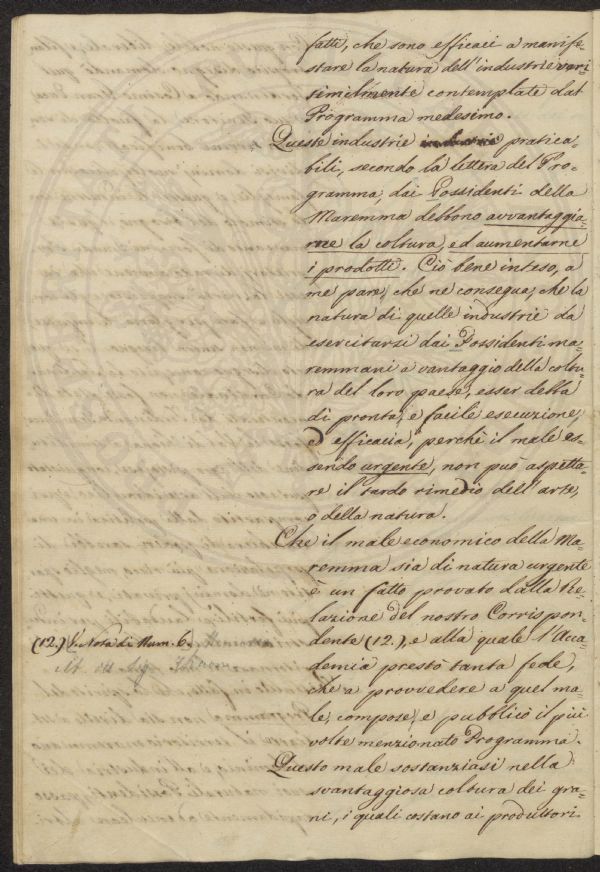 fatti, che sono efficaci a manife-
stare la natura dell'industrie veri
similmente contemplate dal
Programma medesimo.
Queste industrie pratica-
bili, secondo la lettera del Pro-
gramma, dai Possidenti della
Maremma debbono avvantaggia-
rne la coltura, ed aumentarne
i prodotti. Ciò bene inteso, a
me pare, che ne consegua, che la
natura di quelle industrie da
esercitarsi dai Possidenti ma-
remmani a vantaggio della coltu-
ra del loro paese, esser debba
di pronta, e facile esecuzione,
ed efficacia, perchè il male es-
sendo urgente, non può aspetta-
re il tardo rimedio dell'arte,
o della natura.
Che il male economico della Ma-
remma sia di natura urgente
è un fatto provato dalla Re-
lazione del nostro Corrispon-
dente (12.), e alla quale l'Acca-
demia prestò tanta fede,
che a provvedere a quel ma-
le, compose, e pubblicò il più
volte menzionato Programma.
Questo male sostanziasi nella
svantaggiosa coltura dei gra-
ni, i quali costano ai produttori
(12.) V. Nota di Num. 6.